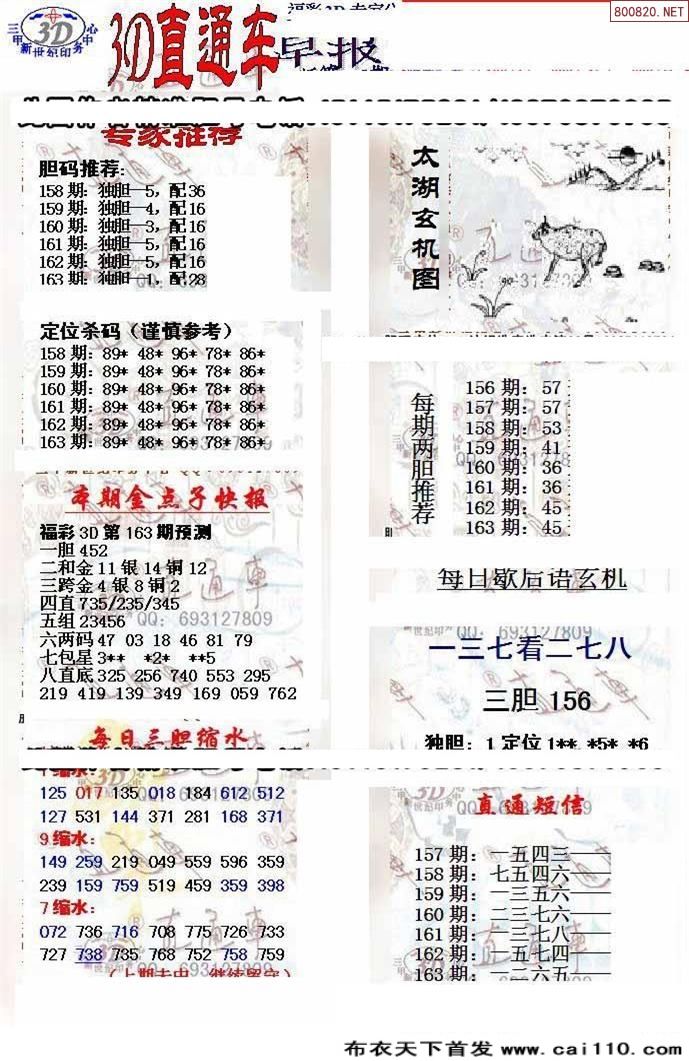 800820.NET
三甲新世纪印务中心
3D
3D直通车
早报
专家推荐
胆码推荐:
158期: 独胆—5, 配36
159期: 独胆—4, 配16
160期: 独胆—3, 配16
161期: 独胆—5, 配16
162期: 独胆—5, 配16
163期: 独胆—1, 配28
定位杀码（谨慎参考）
158期: 89* 48* 96* 78* 86*
159期: 89* 48* 96* 78* 86*
160期: 89* 48* 96* 78* 86*
161期: 89* 48* 96* 78* 86*
162期: 89* 48* 96* 78* 86*
163期: 89* 48* 96* 78* 86*
本期金点子快报
福彩3D第163期预测
一胆452
二和金11银14铜12
三跨金4银8铜2
四直735/235/345
五组23456
QQ: 693127809
六两码47 03 18 46 81 79
七包星3** *2* **5
八直底325 256 740 553 295
219 419 139 349 169 059 762
每日三胆缩水
1缩水:
125 017 135 018 184 612 512
127 531 144 371 281 168 371
9缩水:
149 259 219 049 559 596 359
239 159 759 519 459 359 398
7缩水:
072 736 716 708 775 726 733
727 738 735 768 752 758 759
太湖玄机图
每期两胆推荐
156期: 57
157期: 57
158期: 53
159期: 41
160期: 36
161期: 36
162期: 45
163期: 45
每日歇后语玄机
QQ: 693127809
一三七看二七八
三胆 156
独胆: 1 定位1** *5* *6
直通短信
157期: 一五四三一
158期: 七五四六一
159期: 一三五六一
160期: 二三七六一
161期: 一三七八一
162期: 一五七四一
163期: 一二六五一
布衣天下首发 www.cai110.com